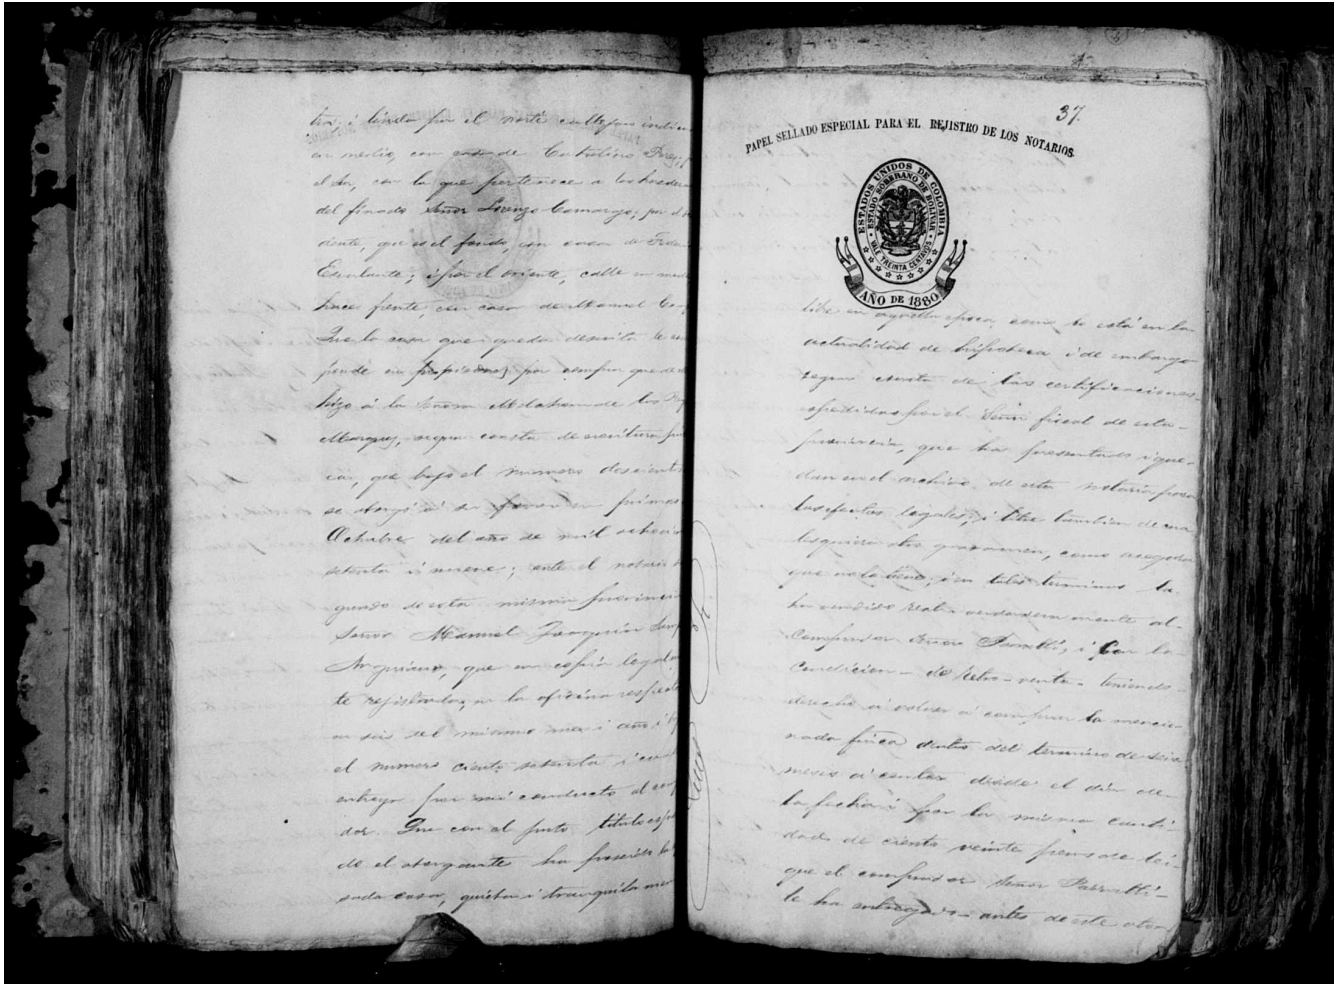 i linda por el norte callejon
en medio, con casa de Catalino Perez,
el Sur, con la que pertenece a los heredero
del finado Señor Lorenzo Camargo; por
dente, que es el fondo, con casa de
Escalante; i por el oriente, calle en
hace frente, con casa de Manuel
Que la casa que queda descrita le
pende en propiedad, por compra que de
hizo á la Señora de los
Marques, segun consta de escritura
ca, que bajo el numero doscientos
se otorgó á su favor en primero
Octubre del año de mil ochocie
setenta i nueve; ante el notario
gundo de esta misma provincia
Señor Manuel Joaquin
Anguiano, que en copia legal
te rejistrada, en la oficina respecti
en seis del mismo mes i año i
el numero ciento setenta i
entrega por mi conducto al comp
dor. Que con al justo titulo
do el otorgante ha poseido la
sada casa, quieta i tranquila
37.
PAPEL SELLADO ESPECIAL PARA EL REJISTRO DE LOS NOTARIOS.
ESTADOS UNIDOS DE COLOMBIA
ESTADO SOBERANO DE BOLIVAR
VALE TREINTA CENTAVOS
AÑO DE 1880
libre en aquella epoca, como lo está en la
actualidad de hipoteca i de embargo
segun consta de las certificaciones
espedidas por el Señor fiscal de esta
provincia, que ha presentado i que-
dan en el archivo de esta notaria para
los efectos legales; i libre tambien de cua
lesquiera otro gravamen, como asegura
que no lo tiene; i en tales terminos la
ha vendido real i verdaderamente al
comprador Señor i con la
condicion de retro-venta teniendo
derecho á volver á comprar la mencio-
nada finca dentro del termino de seis
meses á contar desde el dia de
la fecha i por la misma canti-
dad de ciento veinte pesos de lei
que el comprador Señor
le ha entregado antes de este otor